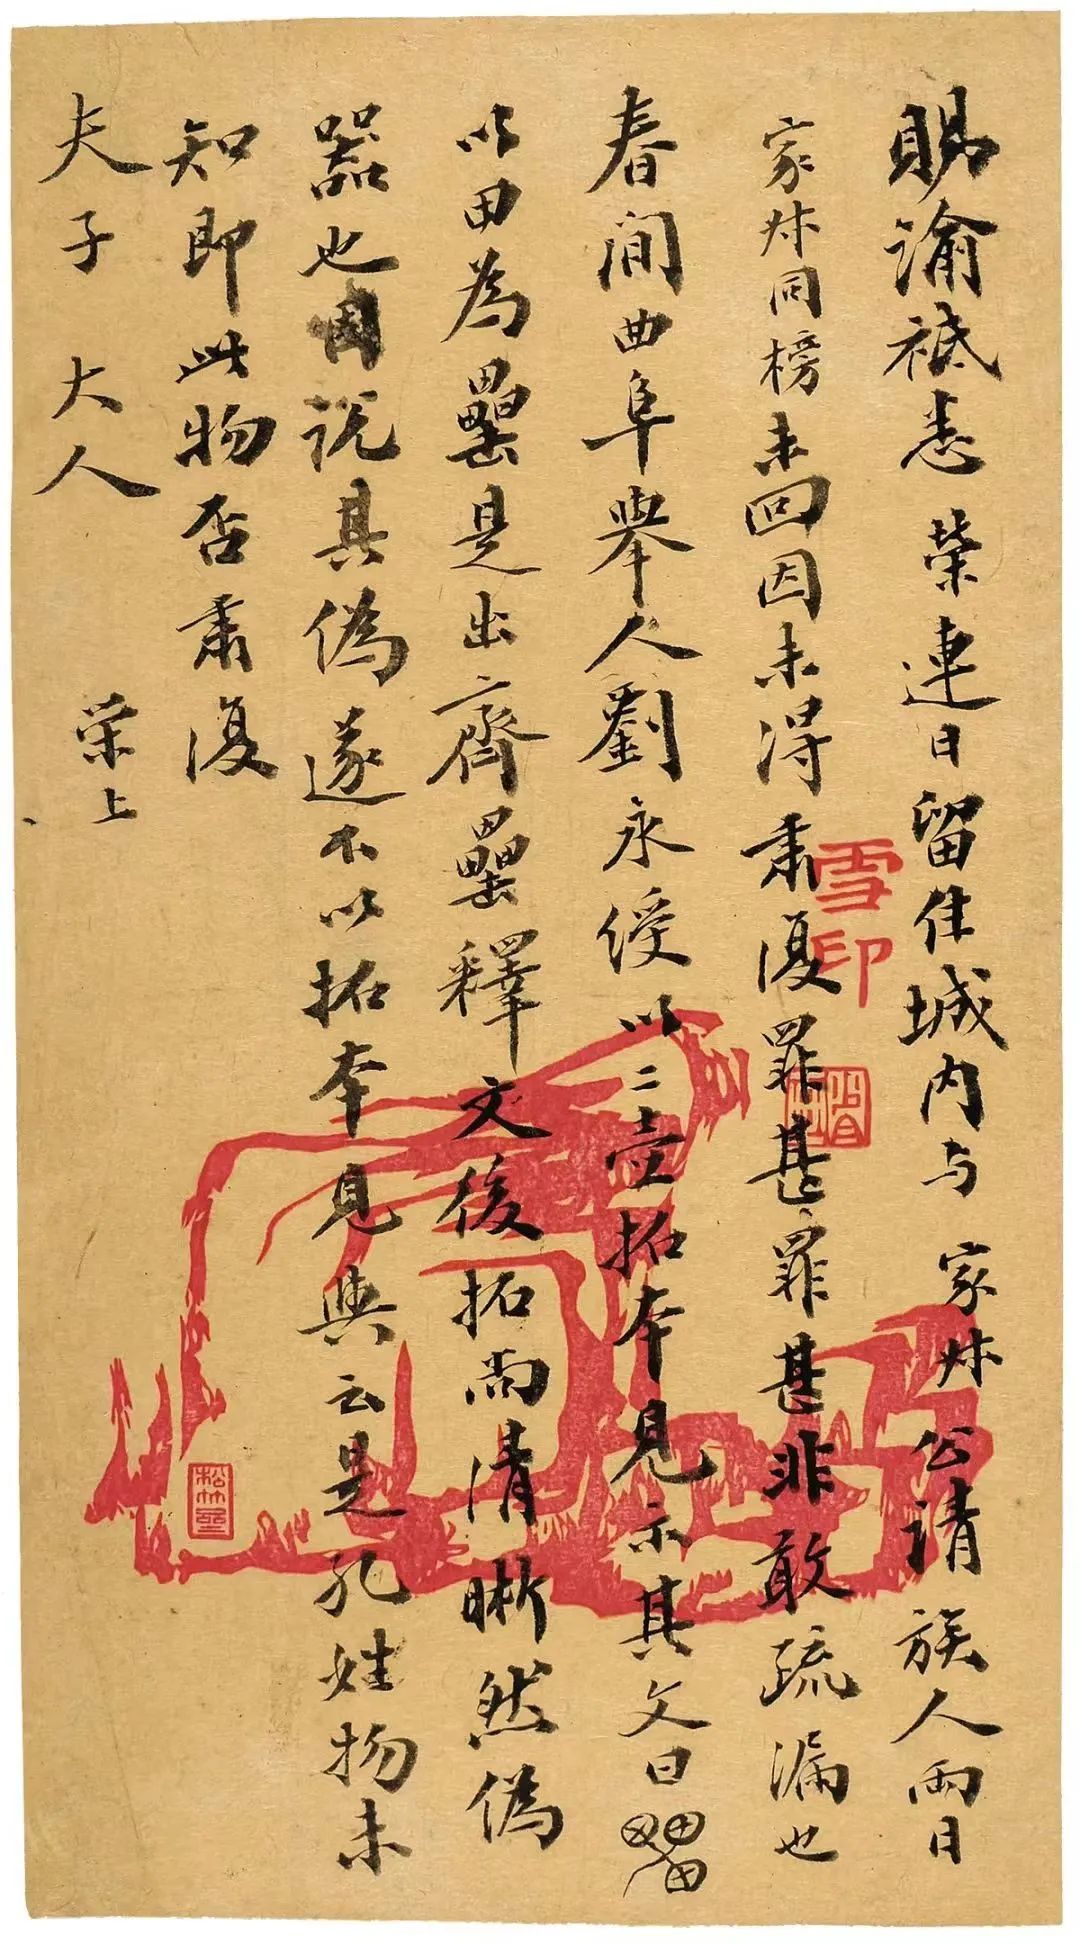 賜諭祗悉 榮連日留住城内与 家叔公請 族人兩日
家叔同榜未回因未得肅復罪甚罪甚非敢疏漏也
春间曲阜舉人劉永綬以二壺拓本見示其文曰
以田為罍是出齊罍釋文後拓尚清晰然偽
器也因说其偽遂不以拓本見與云是孔姓物未
知即此物否肅復
夫子 大人 荣上
雪印
松竹